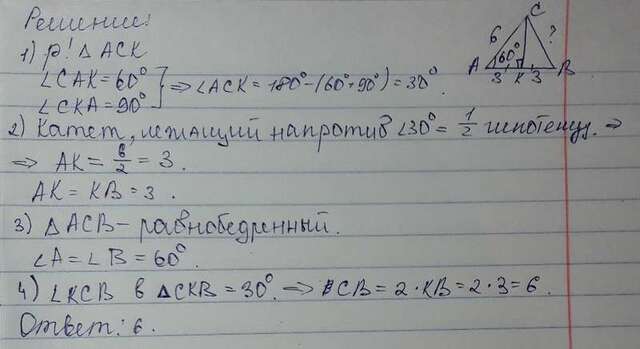 Решение:
1) р! △ ACK
∠CAK = 60°
∠CKA = 90°
⇒ ∠ACK = 180° - (60° + 90°) = 30°.
2) Катет, лежащий напротив ∠30° = 1/2 гипотенуз. ⇒
⇒ AK = 6/2 = 3.
AK = KB = 3.
3) △ ACB – равнобедренный.
∠A = ∠B = 60°.
4) ∠KCB в △CKB = 30°. ⇒ CB = 2·KB = 2·3 = 6.
Ответ: 6.
C
6
?
60°
A
3
K
3
B